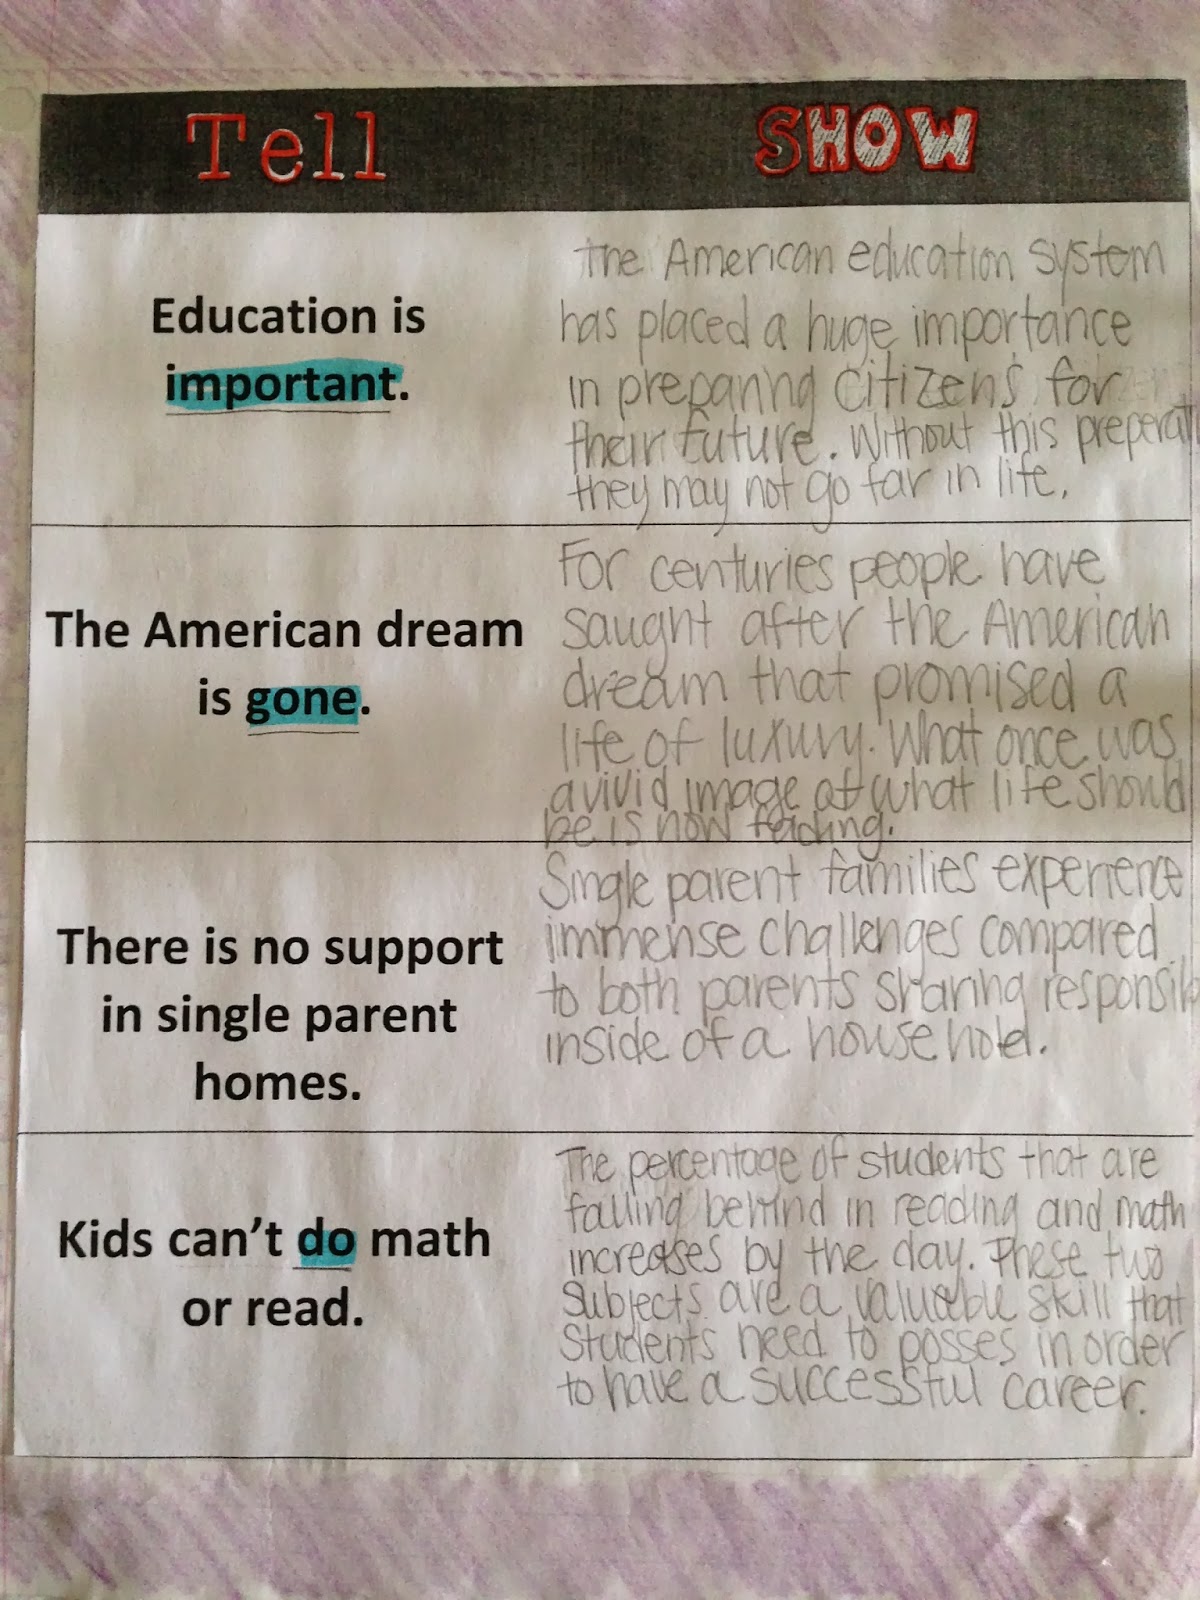 Tell
SHOW
Education is
important.
The American education system
has placed a huge importance
in preparing citizens for
their future. Without this preperati
they may not go far in life.
The American dream
is gone.
For centuries people have
saught after the American
dream that promised a
life of luxury. What once was
a vivid image of what life should
be is now fading.
There is no support
in single parent
homes.
Single parent families experience
immense challenges compared
to both parents sharing responsib
inside of a household.
Kids can't do math
or read.
The percentage of students that are
falling behind in reading and math
increases by the day. These two
subjects are a valuable skill that
students need to posses in order
to have a successful career.